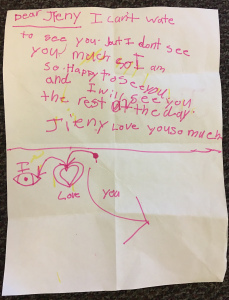 Dear Jieny I can't wate
to see you but I dont see
you much so I am
so Happy to see you
and I will see you
the rest of the day
Jieny Love you so much
I
Love
you